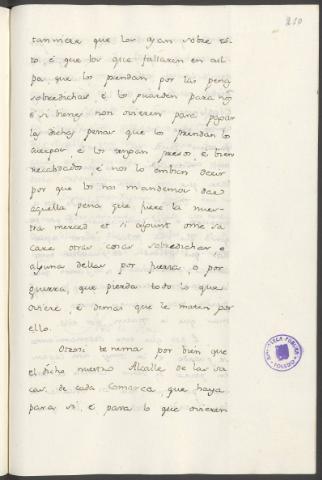 210
tanniere que los oyan sobre es-
to, e que los que fallaren en cul-
pa que los prendan por las penas
sobredichas e los guarden para nos
e si bienes non ovieren para pagar
las dichas penas que lo prendan lo
cuerpos e los tengan presos e bien
recabdados e nos lo embien decir
por que los nos mandemos dar
aquella pena que fuere la nues-
tra merced et si algunt ome sa
care otras cosas sobredichas o
alguna dellas por fuerza o por
guerra, que pierda todo lo que
oviere, e demas que le maten por
ello.
Otrosi tenemos por bien que
el dicho nuestro Alcalle de las sa
cas de cada Comarca que haya
para si e para lo que ovieren
BIBLIOTECA PUBLICA
TOLEDO